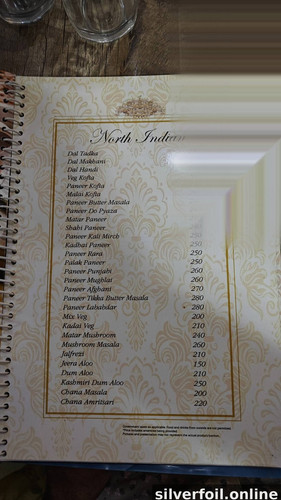 North Indian
Dal Tadka
Dal Makhani
Dal Handi
Veg Kofta
Paneer Kofta
Malai Kofta
Paneer Butter Masala
Paneer Do Pyaza
Matar Paneer
Shahi Paneer
Paneer Kali Mirch
Kadhai Paneer 250
Paneer Rara 250
Palak Paneer 250
Paneer Punjabi 260
Paneer Mughlai 260
Paneer Afghani 270
Paneer Tikka Butter Masala 280
Paneer Lababdar 280
Mix Veg 200
Kadai Veg 210
Matar Mushroom 240
Mushroom Masala 260
Jalfrezi 210
Jeera Aloo 150
Dum Aloo 210
Kashmiri Dum Aloo 250
Chana Masala 200
Chana Amritsari 220
silverfoil.online